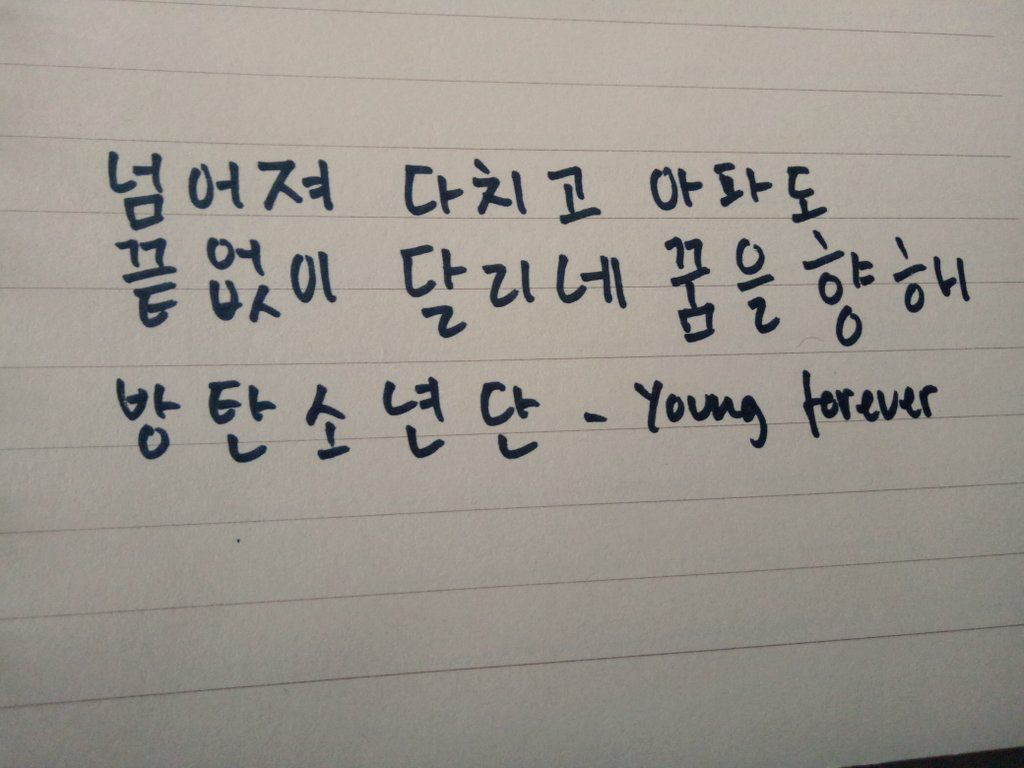 넘어져 다치고 아파도
끝없이 달리네 꿈을 향해
방탄소년단 - Young forever